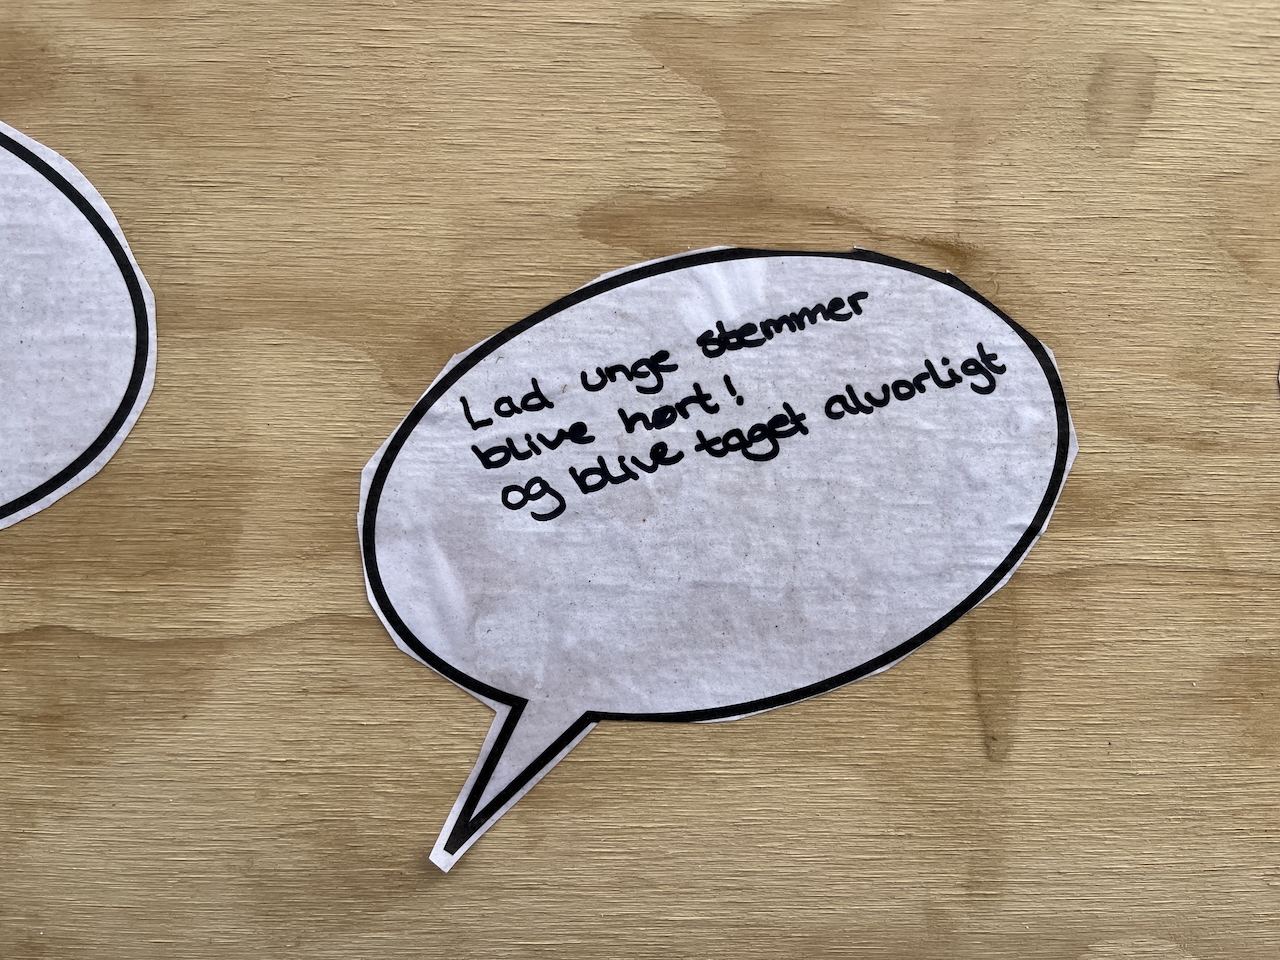 Lad unge stemmer
blive hørt!
og blive taget alvorligt